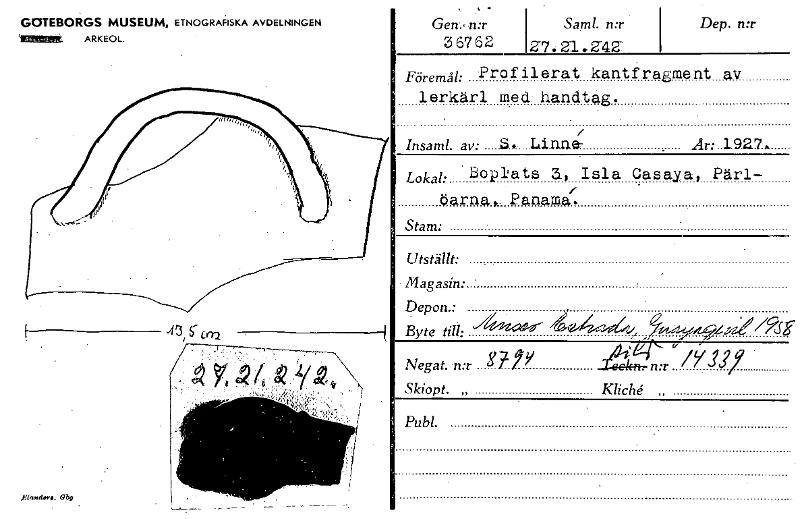 GÖTEBORGS MUSEUM, ETNOGRAFISKA AVDELNINGEN
ARKEOL.
13,5 cm
27.21.242.
Elanders, Gbg
Gen. n:r Saml. n:r Dep. n:r
36762 27.21.242
Föremål: Profilerat kantfragment av
lerkärl med handtag.
Insaml. av: S. Linné År: 1927.
Lokal: Boplats 3, Isla Casaya, Pärl-
öarna, Panamá.
Stam:
Utställt:
Magasin:
Depon.:
Byte till: Museo Estrada, Guayaquil 1958
Negat. n:r 8794 Teckn. n:r 14339
Skiopt. „ Kliché „
Publ.